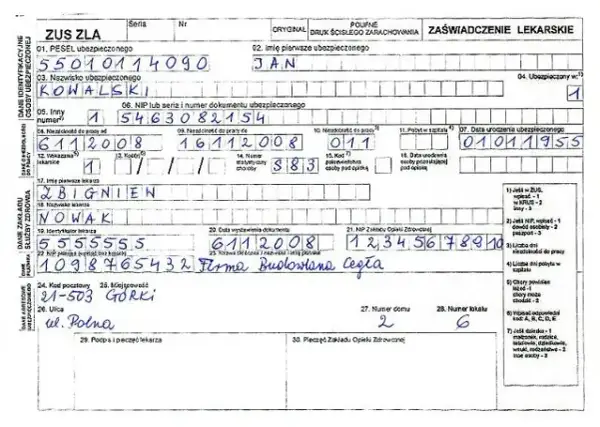 ZUS ZLA Seria Nr ORYGINAŁ POUFNE DRUK ŚCISŁEGO ZARACHOWANIA ZAŚWIADCZENIE LEKARSKIE
01. PESEL ubezpieczonego 02. Imię pierwsze ubezpieczonego
55010114090 JAN
03. Nazwisko ubezpieczonego 04. Ubezpieczony w:1)
KOWALSKI 1
05. Inny numer2) 06. NIP lub seria i numer dokumentu ubezpieczonego
1 5463082154
08. Niezdolność do pracy od 09. Niezdolność do pracy do 10. Niezdolność do pracy3) 11. Pobyt w szpitalu4) 07. Data urodzenia ubezpieczonego
6112008 16112008 011 01011955
12. Wskazania5) lekarskie 13. Kod(y)6) 14. Numer statystyczny choroby 15. Kod7) pokrewieństwa osoby pod opieką 16. Data urodzenia osoby pozostającej pod opieką
1 S83
17. Imię pierwsze lekarza
ZBIGNIEW
18. Nazwisko lekarza
NOWAK
19. Identyfikator lekarza 20. Data wystawienia dokumentu 21. NIP Zakładu Opieki Zdrowotnej
5555555 6112008 12345678910
22. NIP płatnika
1098765432 Firma Budowlana Cegła
24. Kod pocztowy 25. Miejscowość
21-503 GÓRKI
26. Ulica 27. Numer domu 28. Numer lokalu
ul. Polna 2 6
29. Podpis i pieczęć lekarza 30. Pieczęć Zakładu Opieki Zdrowotnej
1) Jeśli w ZUS, wpisać - 1
w KRUS - 2
inny - 3
2) Jeśli NIP, wpisać - 1
dowód osobisty - 2
paszport - 3
3) Liczba dni niezdolności do pracy
4) Liczba dni pobytu w szpitalu
5) Chory powinien leżeć - 1
chory może chodzić - 2
6) Wpisać odpowiedni kod: A, B, C, D, E
7) Jeśli dziecko - 1